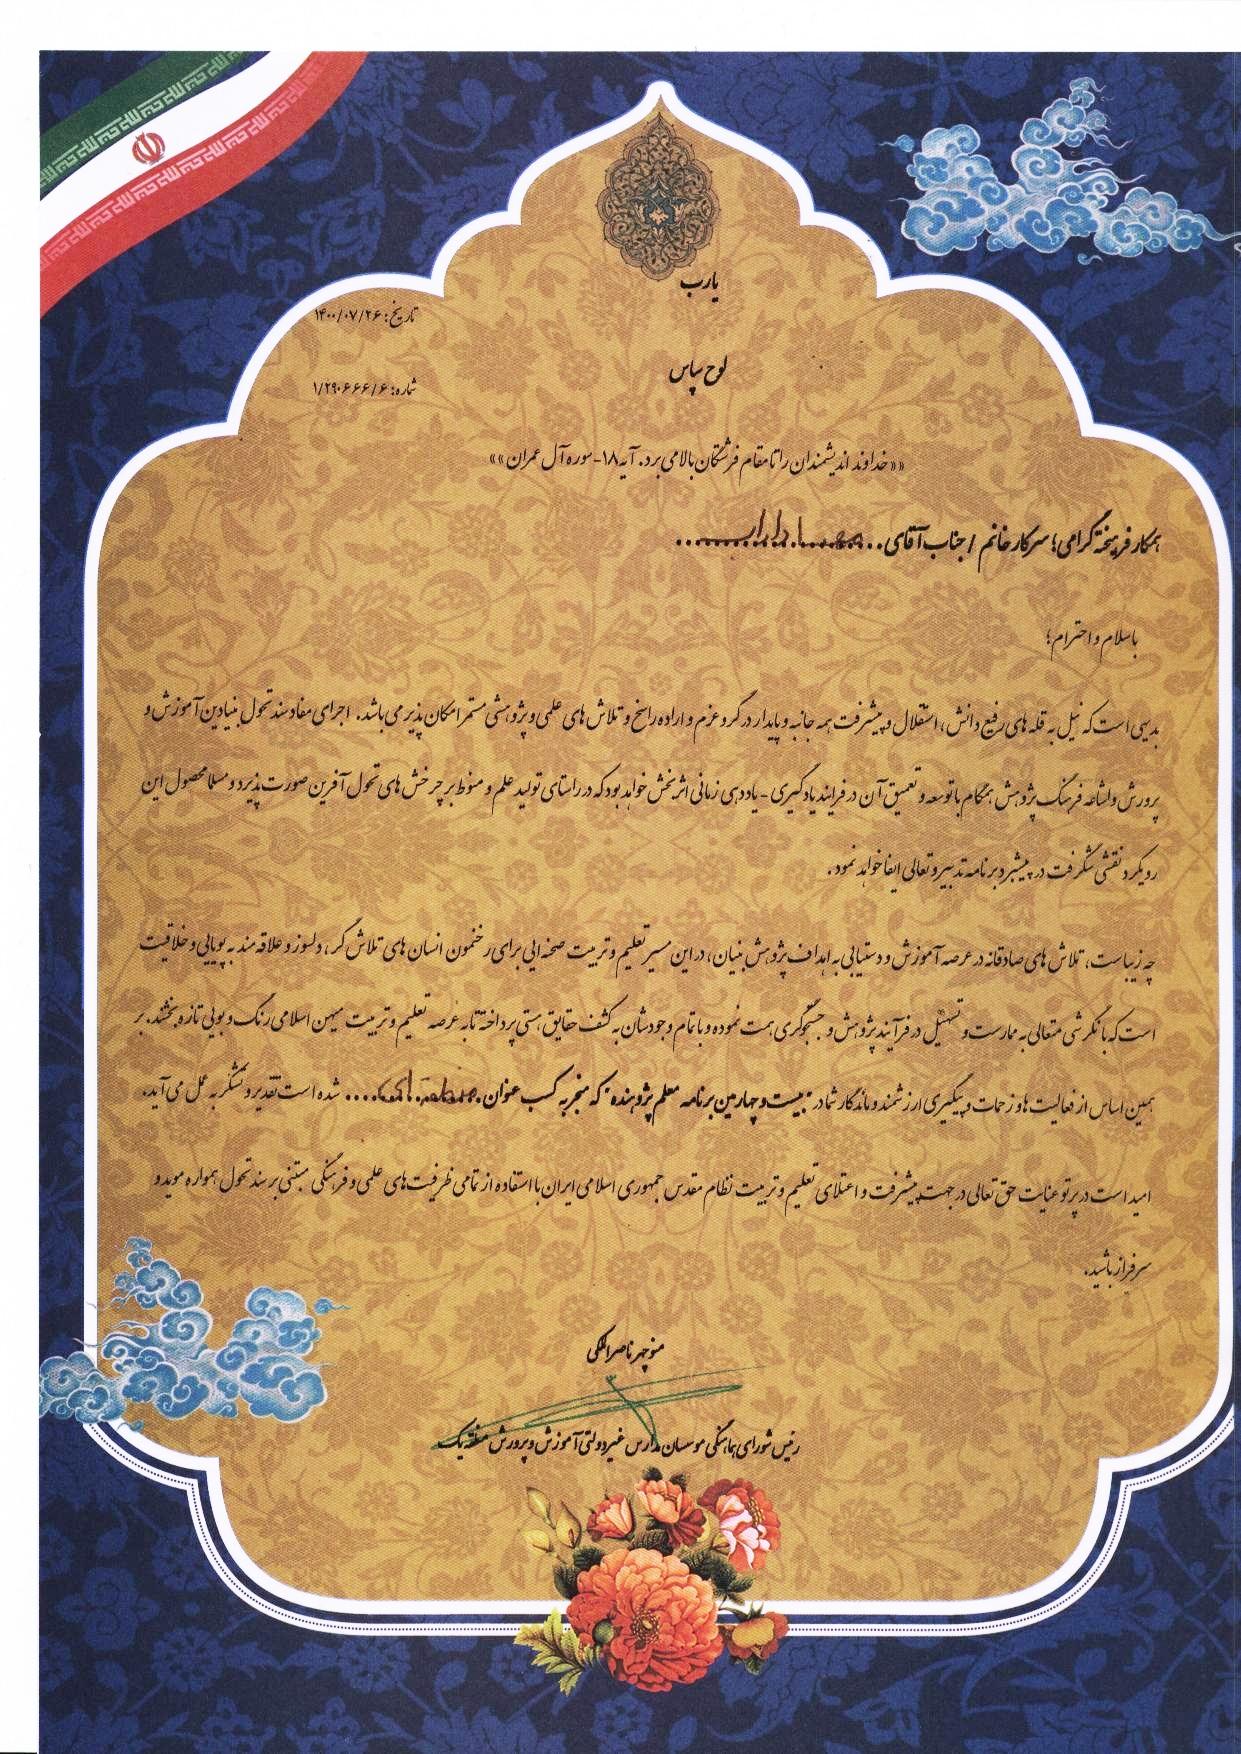 یارب
تاریخ: ۱۴۰۰/۰۷/۲۶
لوح سپاس
شماره: ۱/۲۹۰۶۶۶/۶
««خداوند اندیشمندان را تا مقام فرشتگان بالا می برد. آیه ۱۸- سوره آل عمران»»
همکار فرهیخته گرامی؛ سرکار خانم / جناب آقای مهسا داراب
باسلام و احترام؛
بدیهی است که نیل به قله های رفیع دانش، استقلال و پیشرفت همه جانبه و پایدار در گرو عزم و اراده راسخ و تلاش های علمی و پژوهشی مستمر امکان پذیر می باشد. اجرای مفاد سند تحول بنیادین آموزش و
پرورش و اشاعه فرهنگ پژوهش همگام با توسعه و تعمیق آن در فرایند یادگیری - یاددهی زمانی اثربخش خواهد بود که در راستای تولید علم و منوط بر چرخش های تحول آفرین صورت پذیرد و مسلما محصول این
رویکرد نقشی شگرفت در پیشبرد برنامه تدبیر و تعالی ایفا خواهد نمود.
چه زیباست، تلاش های صادقانه در عرصه آموزش و دستیابی به اهداف پژوهش بنیان، در این مسیر تعلیم و تربیت صحنه ایی برای رخنمون انسان های تلاش گر، دلسوز و علاقه مند به پویایی و خلاقیت
است که با نگرشی متعالی به ممارست و تسهیل در فرآیند پژوهش و جستجوگری همت نموده و با تمام وجودشان به کشف حقایق هستی پرداخته تا به عرصه تعلیم و تربیت میهن اسلامی رنگ و بویی تازه بخشند. بر
همین اساس از فعالیت ها و زحمات و پیگیری ارزشمند و ماندگار شما در "بیست و چهارمین برنامه معلم پژوهنده" که منجر به کسب عنوان منطقه ای شده است تقدیر و تشکر به عمل می آید.
امید است در پرتو عنایت حق تعالی در جهت پیشرفت و اعتلای تعلیم و تربیت نظام مقدس جمهوری اسلامی ایران با استفاده از تمامی ظرفیت های علمی و فرهنگی مبتنی بر سند تحول همواره موید و
سرفراز باشید.
منوچهر ناصرالملکی
رئیس شورای هماهنگی موسسان مدارس غیردولتی آموزش و پرورش منطقه یک